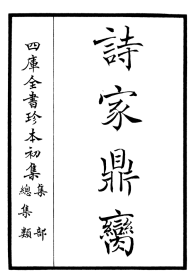 詩家鼎臠
四庫全書珍本初集
集部
總集類